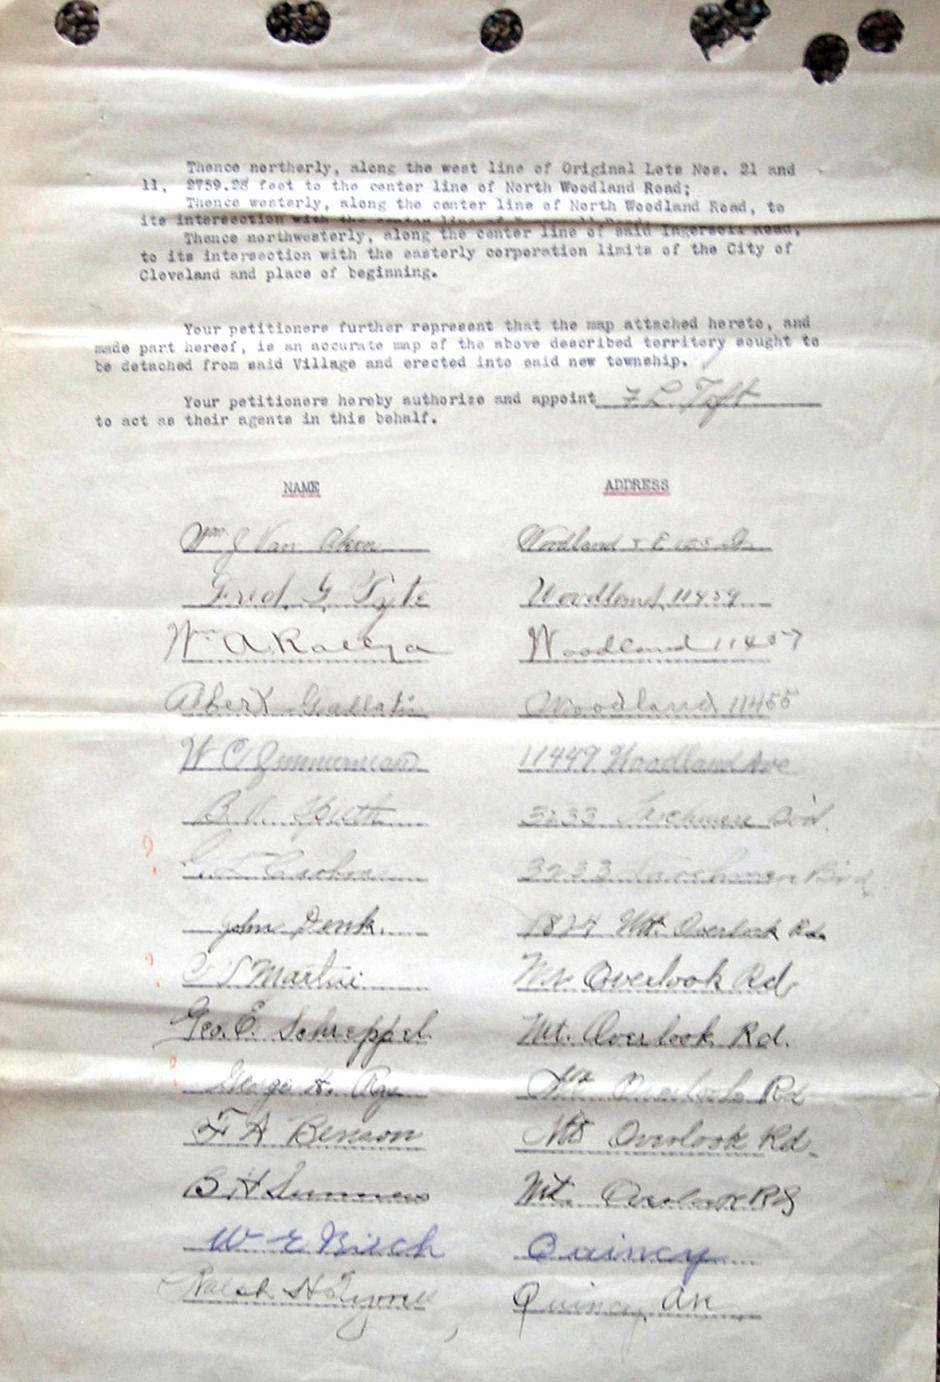 Thence northerly, along the west line of Original Lots Nos. 21 and
11, 2759.28 feet to the center line of North Woodland Road;
Thence westerly, along the center line of North Woodland Road, to
its intersection with the center line of Ingersoll Road;
Thence northwesterly, along the center line of said Ingersoll Road,
to its intersection with the easterly corporation limits of the City of
Cleveland and place of beginning.
Your petitioners further represent that the map attached hereto, and
made part hereof, is an accurate map of the above described territory sought to
be detached from said Village and erected into said new township.
Your petitioners hereby authorize and appoint F L Taft
to act as their agents in this behalf.
NAME ADDRESS
Wm J Van Aken Woodland & E
Fred. G. Woodland 11459
Wm A. Woodland 11457
Albert Gallatin Woodland 11455
W C Zimmerman 11449 Woodland Ave
B. V. 3233
? 3233
John Denk. Mt. Overlook Rd.
? Martin Mt Overlook Rd
Geo. E. Schreppel. Mt. Overlook Rd.
? George H. Mt Overlook Rd
F A Benson Mt Overlook Rd.
B H Mt. Overlook Rd
W E Birch Quincy
Ralph H Quincy Av